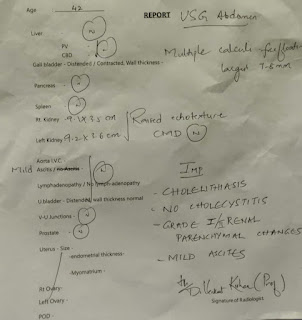 Age : 42
REPORT USG Abdomen
Liver N
PV
CBD N
Gall bladder - Distended / Contracted, Wall thickness - Multiple calculi
largest 7-8mm
Pancreas - N
Spleen N
Rt. Kidney Raised echotexture
Left Kidney 9.2 x 3.6 cm CMD N
Aorta I.V.C. N
Mild Ascites / No Ascites
Lymphadenopathy / No lymph adenopathy
U bladder - Distended, wall thickness normal
V-U Junctions - N
Prostate - N
Uterus - Size -
endometrial thickness-
Myometrium -
Rt Overy-
Left Overy -
POD -
Imp
- CHOLELITHIASIS
- NO CHOLECYSTITIS
- GRADE I/II RENAL
PARENCHYMAL CHANGES
- MILD ASCITES
(Prof)
Signature of Radiologist